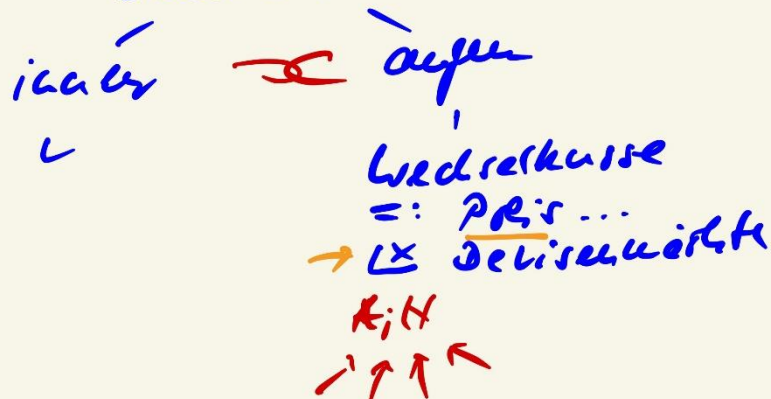 innen außen
Wechselkurse
=: Preis ...
Devisenmärkte
A; N